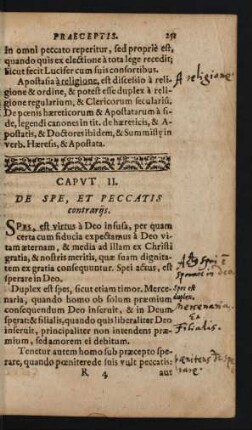 PRAECEPTIS. 251
In omni peccato reperitur, sed propriè est,
quando quis ex electione à tota lege recedit;
sicut fecit Lucifer cum suis consortibus.
Apostasia à religione, est discessio à reli-
gione & ordine, & potest esse duplex à reli-
gione regularium, & Clericorum secularis.
De pœnis hæreticorum & Apostatarum à fi-
de, legendi canones in tit. de hæreticis, & A-
postatis, & Doctores ibidem, & Summistę in
verb. Hæresis, & Apostata.
A religione
CAPVT II.
DE SPE, ET PECCATIS
contrarijs.
SPES, est virtus à Deo infusa, per quam
certa cum fiducia expectamus à Deo vi-
tam æternam, & media ad illam ex Christi
gratia, & nostris meritis, quæ suam dignita-
tem ex gratia consequuntur. Spei actus, est
sperare in Deo.
Duplex est spes, sicut etiam timor. Merce-
naria, quando homo ob solum præmium
consequendum Deo inseruit, & in Deum
sperat: & filialis, quando quis liberaliter Deo
inseruit, principaliter non intendens præ-
mium, sedamorem ei debitum.
Tenetur autem homo sub præcepto spe-
rare, quando pœniterе de suis vult peccatis:
R 4 aut
Spes est
duplex.
Mercenaria.
Et
Filialis.